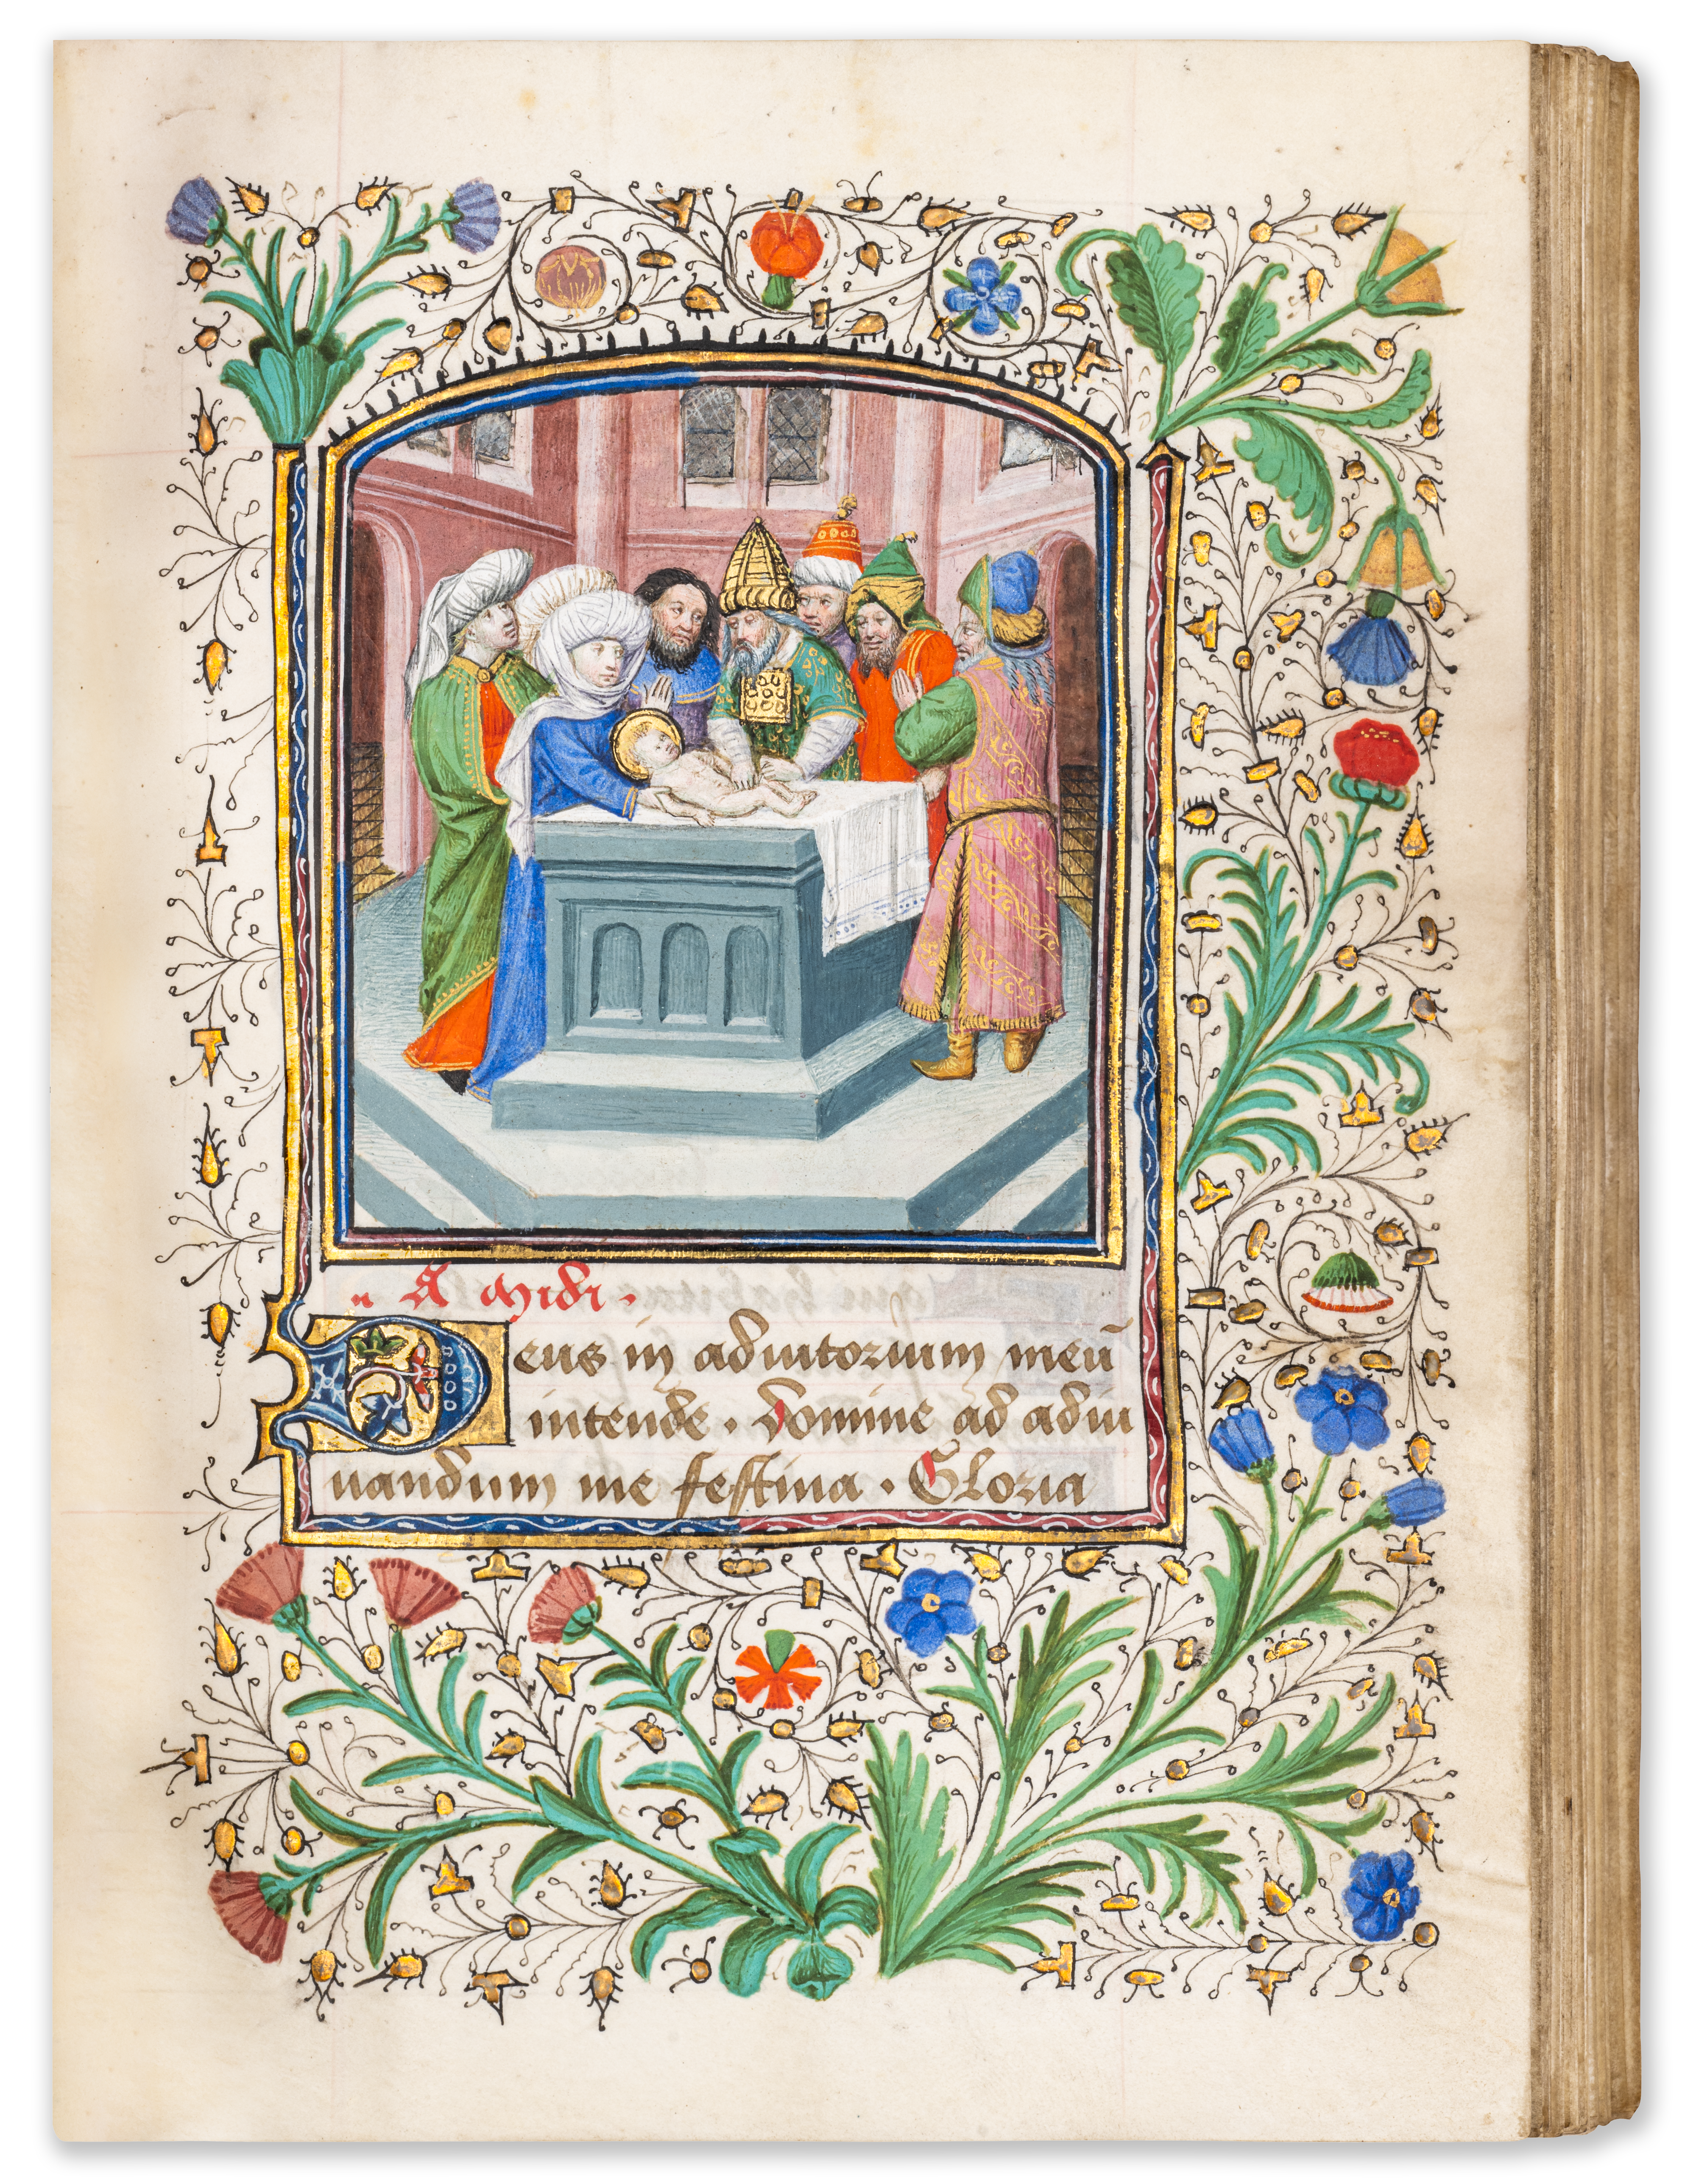 A midi.
Deus in adiutorium meū
intende. domine ad adiu
uandum me festina. Gloria